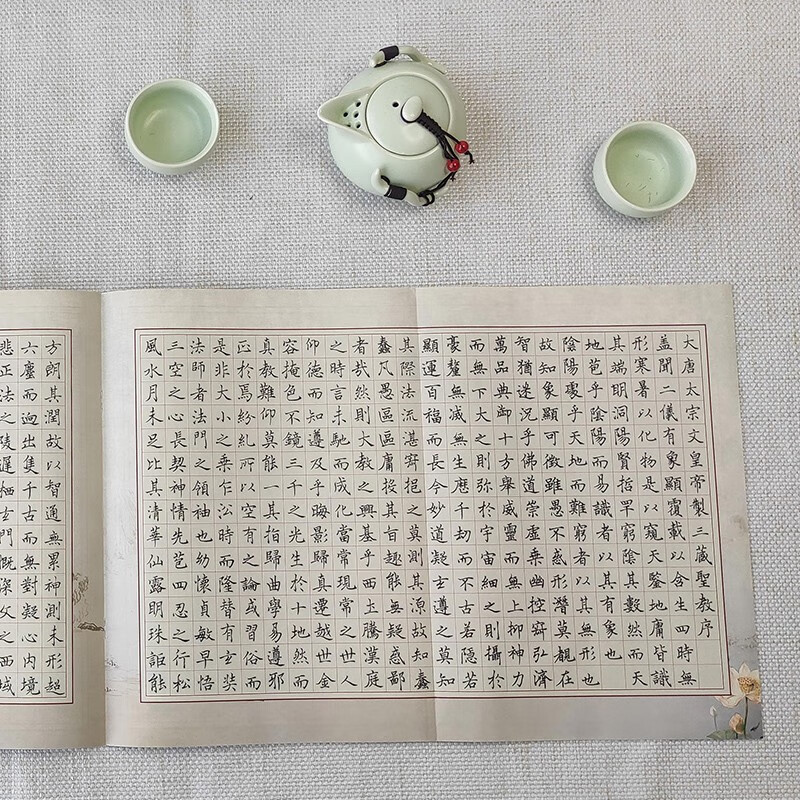 大唐太宗文皇帝製三藏聖教序
蓋聞二儀有象顯覆載以含生四時無
形寒暑以化物是以窺天鑒地庸皆識
其端明洞陽賢罕窮陰其數然而天
地苞乎陰陽而易識者以其有象也
陰陽處乎天地而難窮者以其無形也
故知象顯可徵雖愚不惑形潛莫覩在
智猶迷況乎佛道崇虛乘幽控寂弘濟
萬品典御十方舉威靈而無上抑神力
而無下大之則彌於宇宙細之則攝於
豪釐無滅無生歷千劫而不古若隱若
顯運百福而長今妙道凝玄遵之莫知
其際法流湛寂挹之莫測其源故知蠢
蠢凡愚區區庸投其旨趣能無疑惑鄙
者哉然則大教之興基乎西土騰漢庭
之時言未馳而成化當常現常之世人
仰德而知遵及乎晦影歸真遷越世金
容掩色不鏡三千之光歸生於十地然
真教難仰莫能一其指歸曲學易遵邪
正於焉紛糾所以空有之論或習俗而
是非大小之乘乍沿時而隆替有玄奘
法師者法門之領袖也幼懷貞敏早悟
三空之心長契神情先苞四忍之行松
風水月未足比其清華仙露明珠詎能
方朗其潤故以智通無累神測未形超
六塵而迥出隻千古而無對凝心內境
悲正法之陵遲栖玄門慨深文之西域